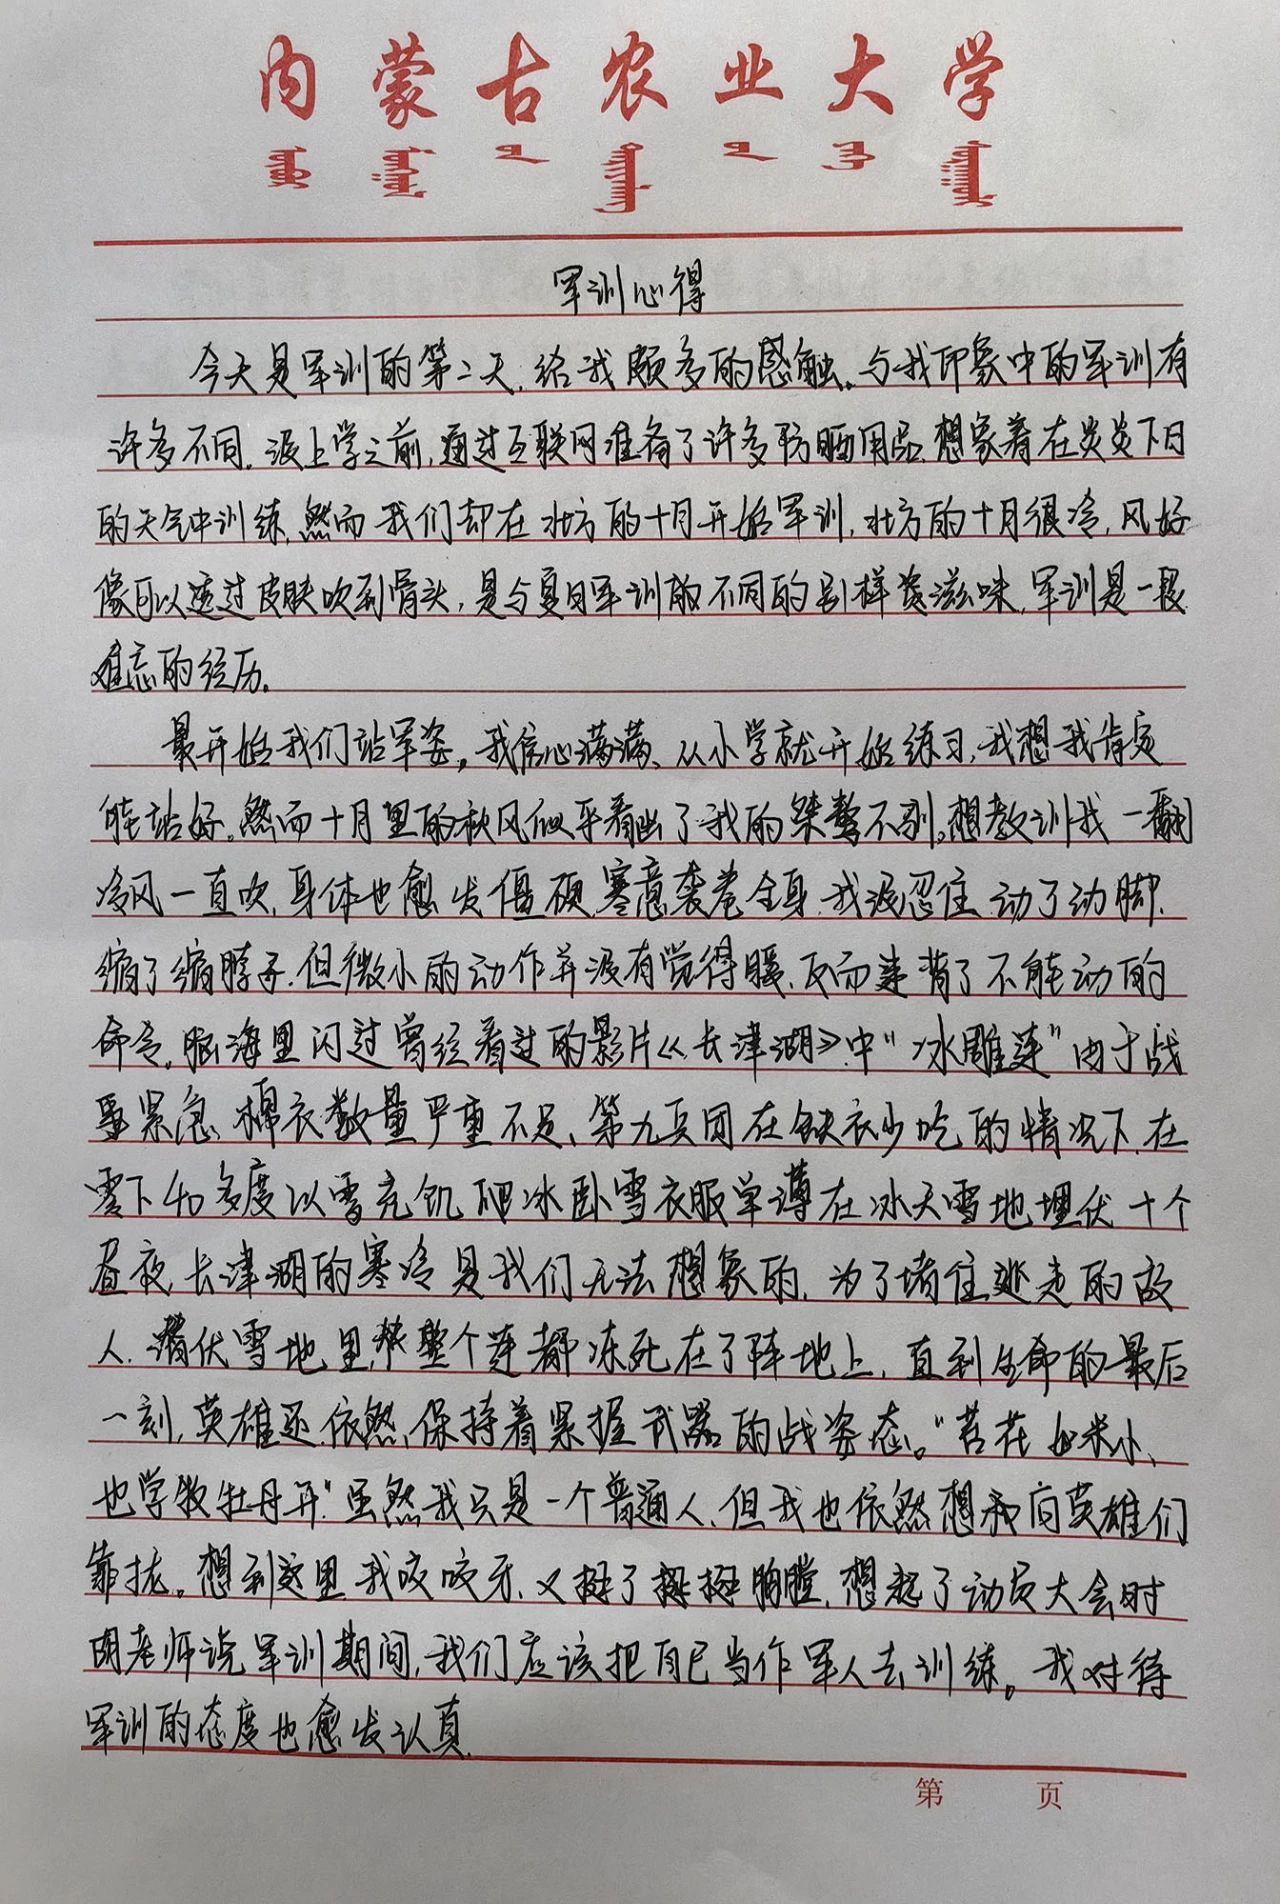 内蒙古农业大学
军训心得
今天是军训的第二天，给我颇多的感触。与我印象中的军训有
许多不同。没上学之前，通过互联网准备了许多防晒用品，想象着在炎炎下日
的天气中训练，然而我们却在北方的十月开始军训，北方的十月很冷，风好
像可以透过皮肤吹到骨头，是与夏日军训的不同的别样滋味，军训是一段
难忘的经历。
最开始我们站军姿，我信心满满、从小学就开始练习，我想我肯定
能站好。然而十月里的秋风似乎看出了我的桀骜不驯，想教训我一翻
冷风一直吹，身体也愈发僵硬，寒意袭卷全身，我没忍住，动了动脚，
缩了缩脖子，但微小的动作并没有觉得暖，反而违背了不能动的
命令，脑海里闪过曾经看过的影片《长津湖》中"冰雕连"由于战
事紧急，棉衣数量严重不足、第九兵团在缺衣少吃的情况下，在
零下40多度以雪充饥，爬冰卧雪衣服单薄在冰天雪地埋伏十个
昼夜，长津湖的寒冷是我们无法想象的，为了堵住逃走的敌
人，潜伏雪地里，整个连都冻死在了阵地上，直到生命的最后
一刻，英雄还依然保持着紧握武器的战姿态。"苔花如米小、
也学牧牡丹开"虽然我只是一个普通人，但我也依然想向英雄们
靠拢。想到这里我咬咬牙，又挺了挺挺胸膛，想起了动员大会时
胡老师说军训期间，我们应该把自己当作军人去训练。我对待
军训的态度也愈发认真.
第 页